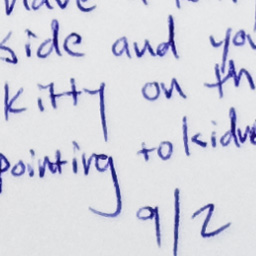 have
side and yo
kitty on th
pointing to kidn
9/2